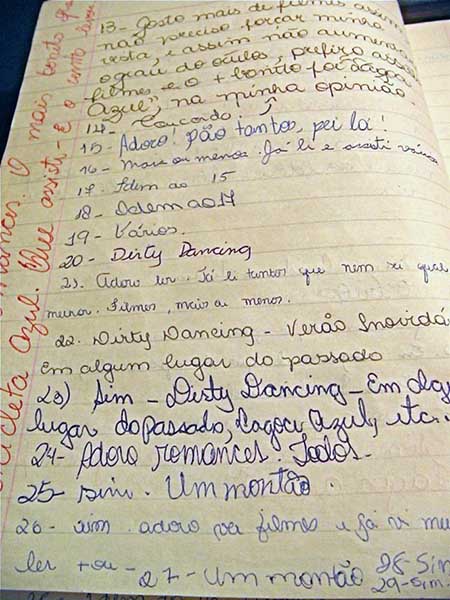 13- Gosto mais de filmes assim
não preciso forçar minha
vista, e assim não aumenta
o grau do oculos, prefiro assistir
filmes e o + bonito foi "Lagoa
Azul", na minha opinião.
14- Concordo.
15- Adoro! São tantos, sei lá!
16- Mais ou menos. Já li e assisti vários
17. Idem ao 15
18- Idem ao 17
19- Vários.
20- Dirty Dancing
21. Adoro ler. Já li tantos que nem sei qual
menor. Filmes, mais ou menos.
22. Dirty Dancing - Verão Inovidá
Em algum lugar do passado
23) Sim - Dirty Dancing - Em alg
lugar do passado, Lagoa Azul, etc.
24- Adoro romances! Todos.
25- sim. Um montão.
26- sim. adoro ver filmes e já vi mu
ler + ou - 27- Um montão 28- Sim
29- Sim.
romances. O mais bonito
cleta azul. Que assisti. E o